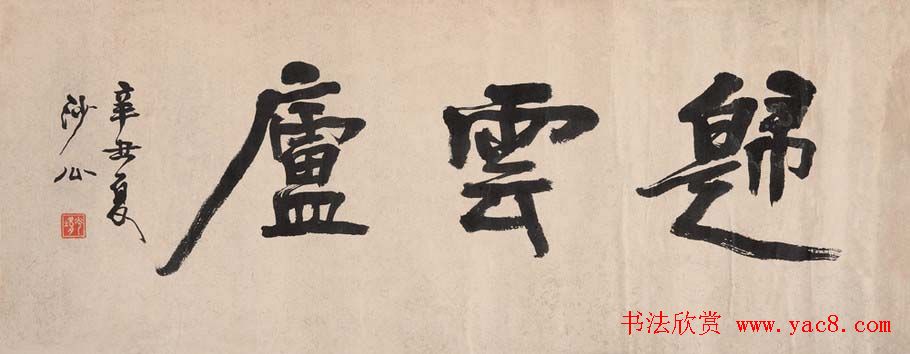 歸雲廬
辛丑夏
沙公
书法欣赏 www.yac8.com